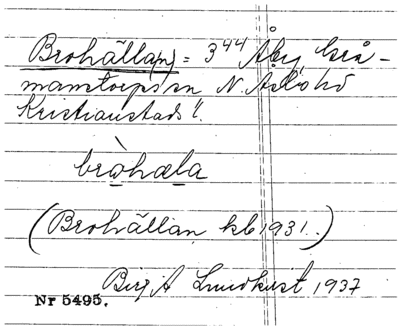 Brohälla(n) = 3⁴⁴ Åby, Grå-
manstorps sn N. Åsbo hd
Kristianstads l.
bròhæla
(Brohällan kb 1931.)
Birgit Lundkvist 1937
Nr 5495.